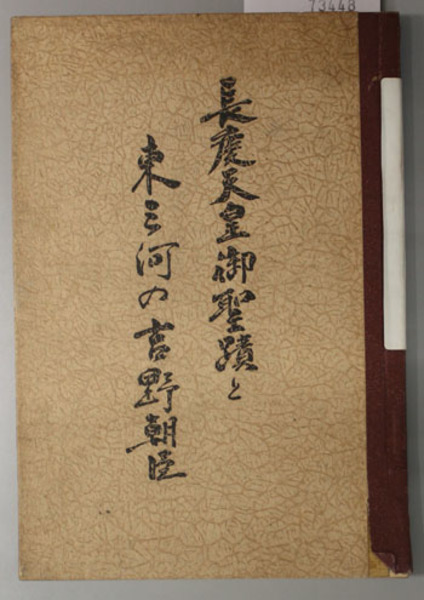 73448
長慶天皇御聖蹟と
東三河の吉野朝臣